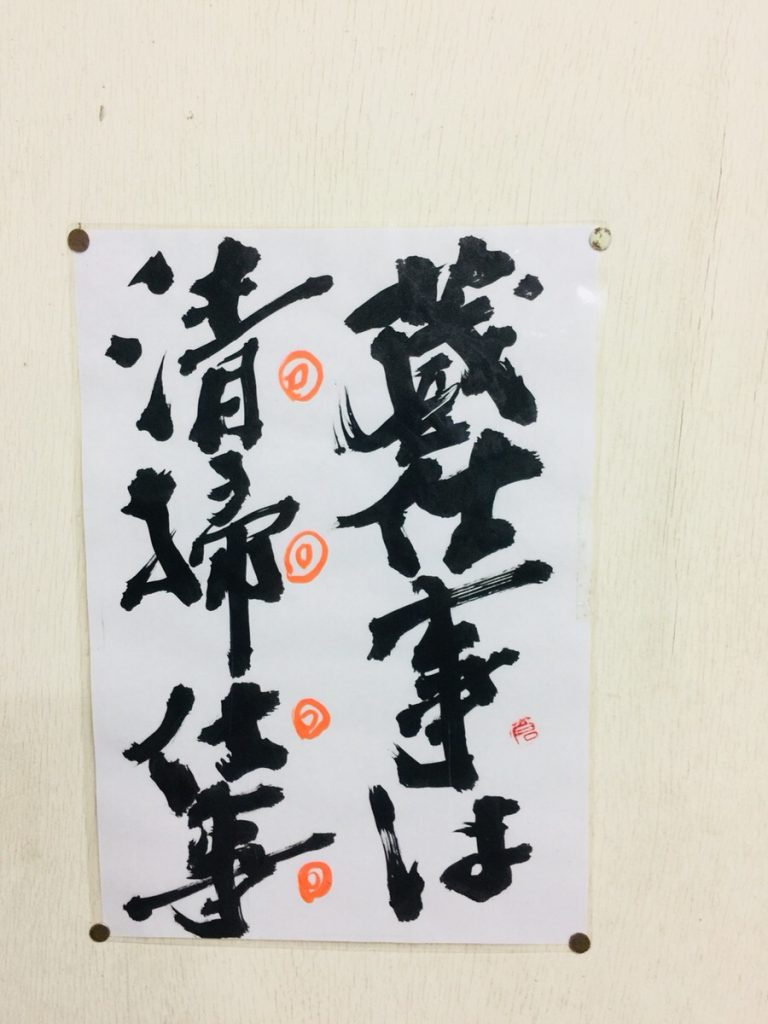 蔵仕事は
清掃仕事